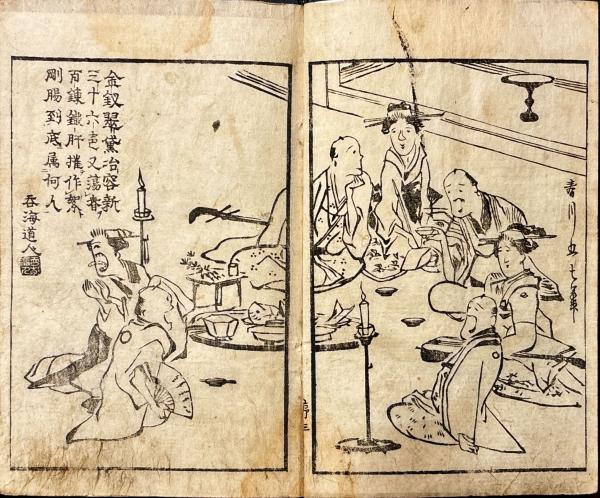 春川五七
金釵翠黛冶容新
三十六宮又蕩春
百錬鐵肝摧作
剛腸到底属何人
呑海道人